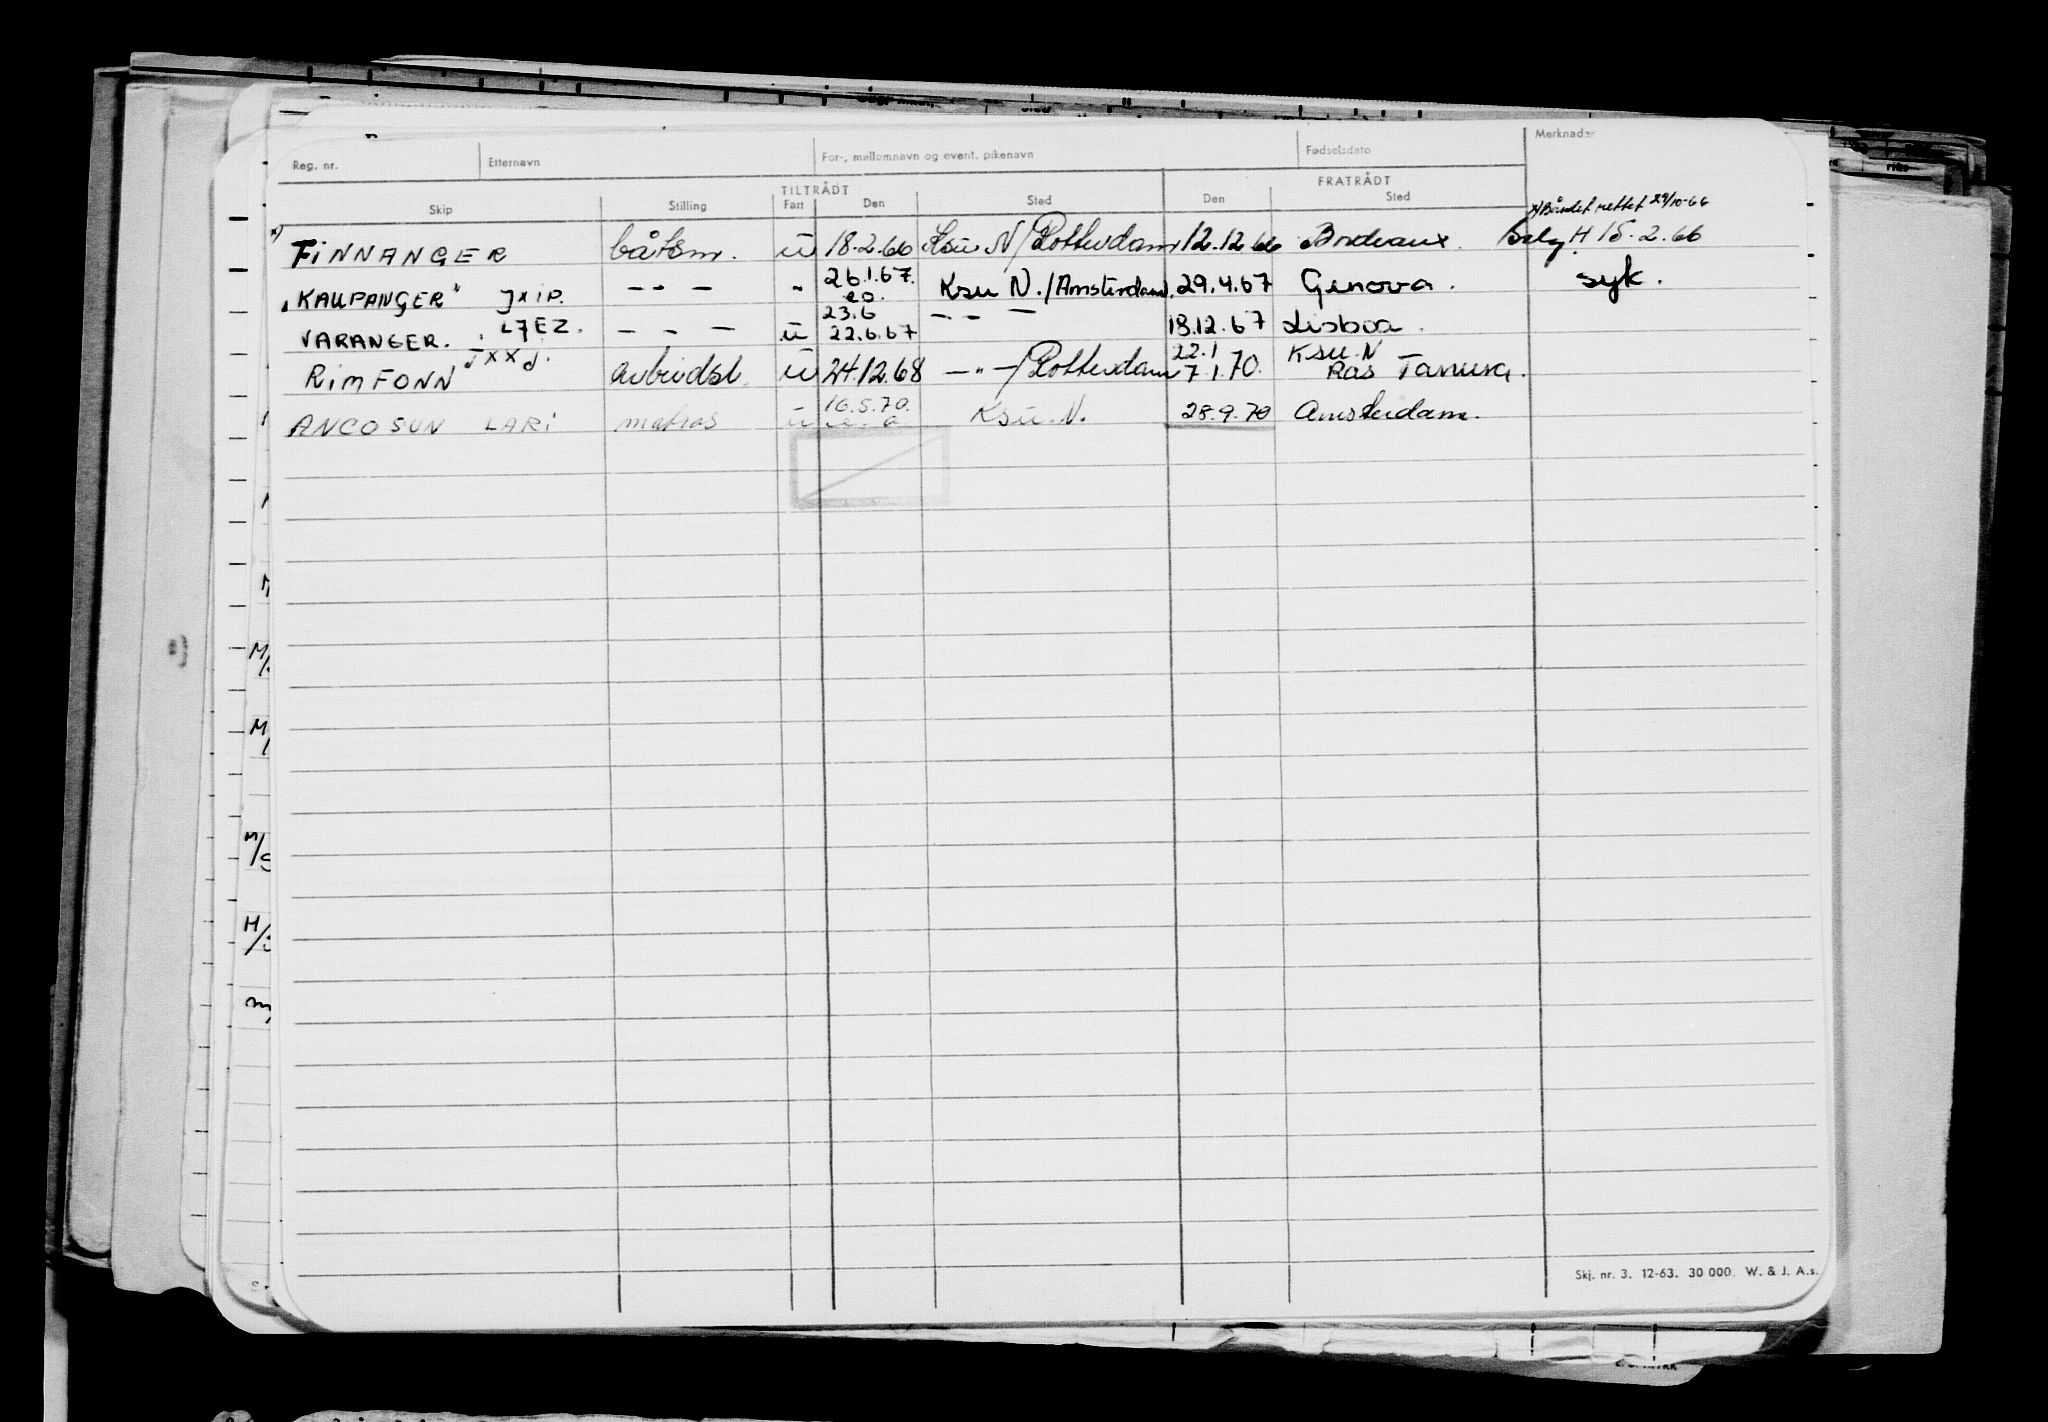 Reg. nr. Etternavn For-, mellomnavn og event. pikenavn Fødselsdato Merknader
TILTRÅDT FRATRÅDT
Skip Stilling Fart Den Sted Den Sted
x) Båndet rettet 29/10-66
x) FINNANGER båtsm. u 18.2.66 Ksu N/Rotterdam 12.12.66 Bordeaux. H 15.2.66
26.1.67.
"KAUPANGER" JXIP. -"- " 20. Ksu N./Amsterdam. 29.4.67 Genova. syk.
23.6
VARANGER. LJEZ. - " - u 22.6.67 - " - 18.12.67 Lisboa.
JXXJ. 22.1 Ksu. N
RIMFONN arbeidsl. u 24.12.68 -"-/Rotterdam 7.1.70. Ras Tanura.
16.5.70.
ANCO SUN LARI matros u u. a. Ksu. N. 28.9.70 Amsterdam.
M/
M/
M/
H/
Skj. nr. 3. 12-63. 30 000. W. & J. A.s.